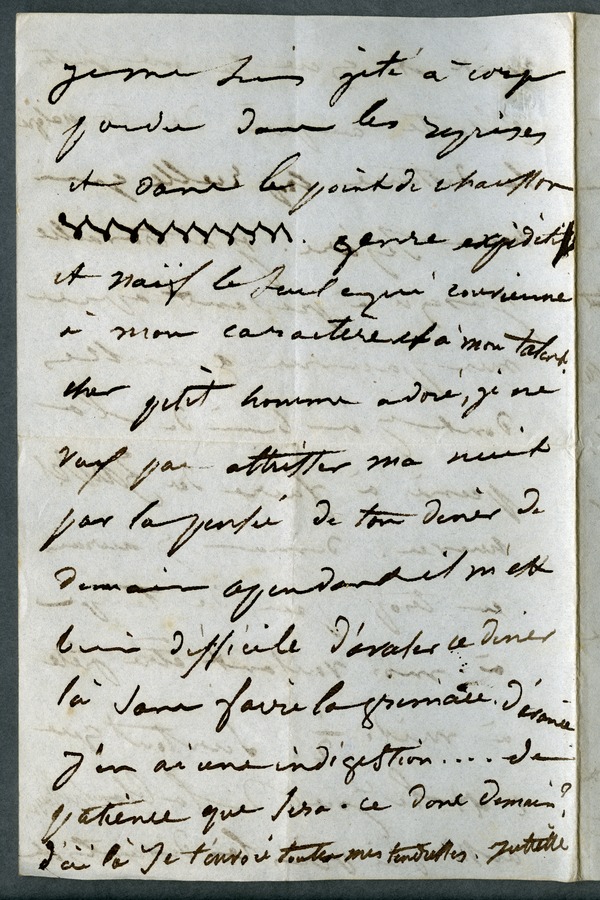 je me suis jeté à corp
perdu dans les reprises
et dans le point de chausson
genre expéditif
et naïf le seul qui convienne
à mon caractère et à mon talent.
cher petit homme adoré, je ne
veux pas attrister ma nuit
par la pensée de ton diner de
demain cependant il m'est
bien difficile d'avaler ce diner
là sans faire la grimace. d'avance
j'en ai une indigestion .... de
patience que sera-ce donc demain?
d'ici là je t'envoie toutes mes tendresses. Juliette